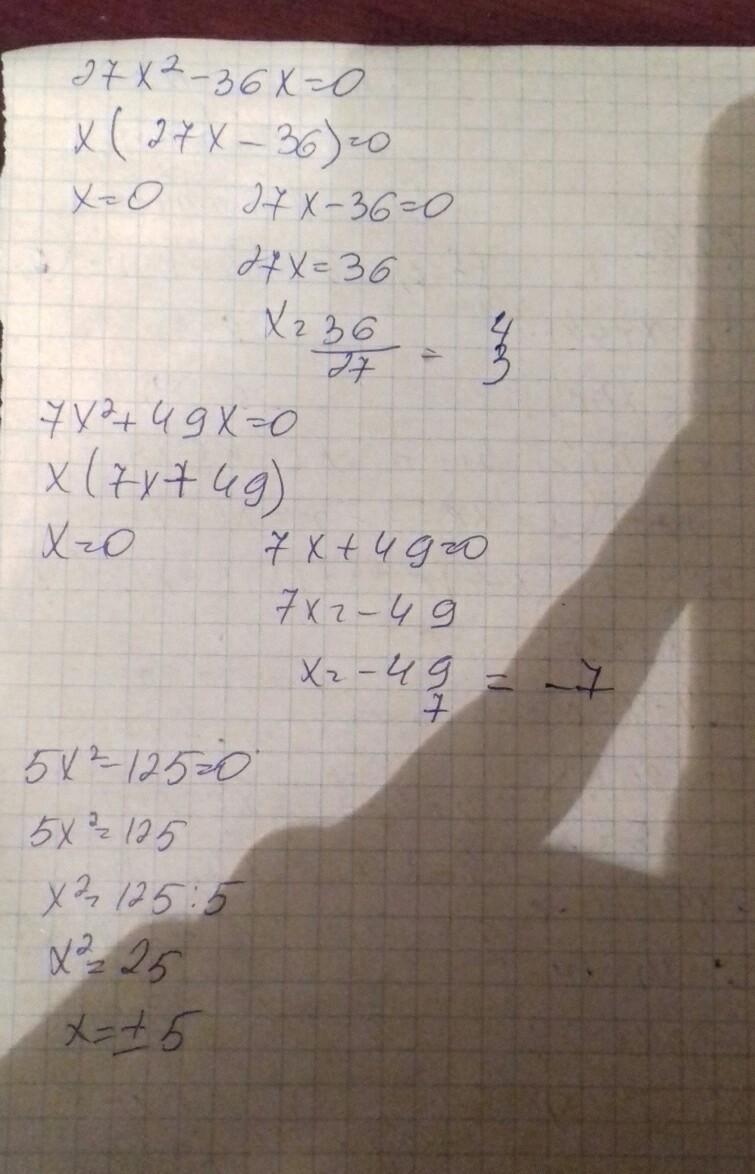 27x²-36x=0
x(27x-36)=0
x=0 27x-36=0
27x=36
x=36/27 = 4/3
7x²+49x=0
x(7x+49)
x=0 7x+49=0
7x=-49
x=-49/7 = -7
5x²-125=0
5x²=125
x²=125:5
x²=25
x=±5